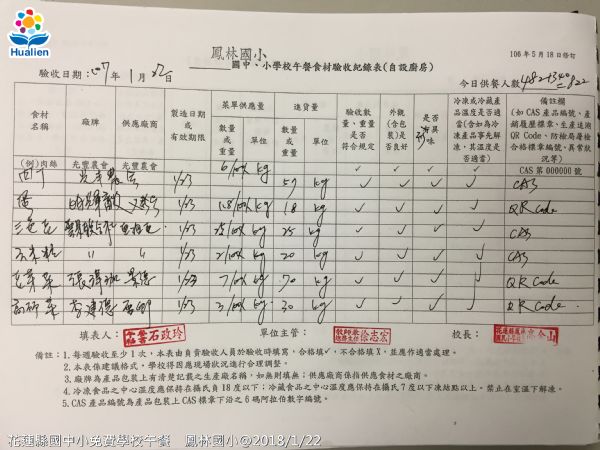 Hualien
鳳林國小
國中、小學校午餐食材驗收紀錄表(自設廚房)
106年5月18日修訂
驗收日期:107年1月22日
今日供餐人數 482+340=822
食材名稱 廠牌 供應廠商 製造日期或有效期限 菜單供應量 進貨量 驗收數量、重量是否符合規定 外觀(含包裝)是否良好 是否有異味 冷凍或冷藏產品溫度是否適當(含如為冷凍產品事先解凍,其溫度是否適當) 備註欄(如CAS產品編號、產銷履歷標章、生產追溯QR Code、防檢局屠宰合格標章編號、異常狀況等)
數量或重量 單位 數量或重量 單位
(例)肉絲 光豐農會 光豐農會 CAS 第000000號
肉丁 光豐農會 1/23 kg 57 kg ✓ ✓ ✓ ✓ CAS
1/23 kg 18 kg ✓ ✓ ✓ ✓ QR Code
三色豆 1/23 kg 25 kg ✓ ✓ ✓ ✓ CAS
玉米粒 〃 〃 1/23 2/100 kg 20 kg ✓ ✓ ✓ ✓ CAS
1/23 7/100 kg 70 kg ✓ ✓ ✓ ✓ QR Code
1/23 3/100 kg 30 kg ✓ ✓ ✓ ✓ QR Code
填表人: 石政玲 單位主管: 徐志宏 校長:
備註:1.每週驗收至少1次,本表由負責驗收人員於驗收時填寫,合格填✓,不合格填X,並應作適當處理。
2.本表係建議格式,學校得因應現場狀況進行合理調整。
3.廠牌為產品包裝上有清楚記載之生產廠名稱,如無則填無;供應廠商係指供應食材之廠商。
4.冷凍食品之中心溫度應保持在攝氏負18度以下;冷藏食品之中心溫度應保持在攝氏7度以下凍結點以上。禁止在室溫下解凍。
5.CAS產品編號為產品包裝上CAS標章下沿之6碼阿拉伯數字編號。
花蓮縣國中小免費學校午餐 鳳林國小@2018/1/22